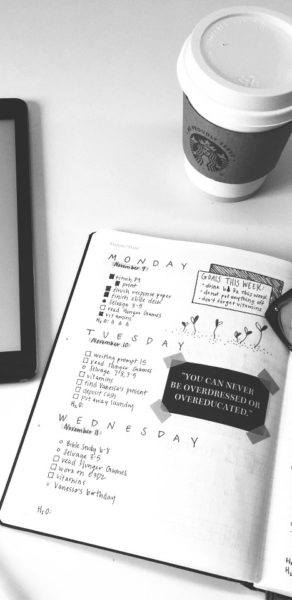 PROUDLY SERVE
MONDAY
November 9:
finish P9
print
finish response paper
finish slide deck
Selvage 3-5
read Hunger Games
vitamins
H₂O: 6 6 6
GOALS THIS WEEK:
drink
this week!
do not put anything off
don't forget vitamins
TUESDAY
November 10:
writing prompt 15
read Hunger Games
Selvage
vitamins
find Vanessa's present
deposit cash
put away laundry
H₂O:
"YOU CAN NEVER
BE OVERDRESSED OR
OVEREDUCATED."
WEDNESDAY
November 11:
Bible Study 6-8
Selvage 3-5
read Hunger Games
work on
vitamins
Vanessa's birthday
H₂O: